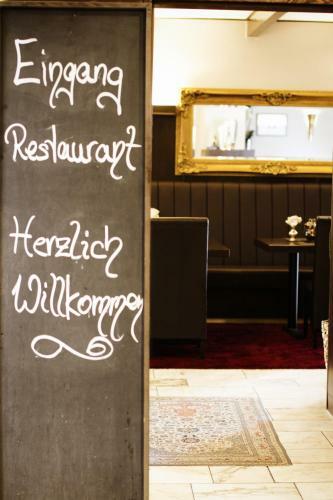 Eingang
Restaurant
Herzlich
Willkommen